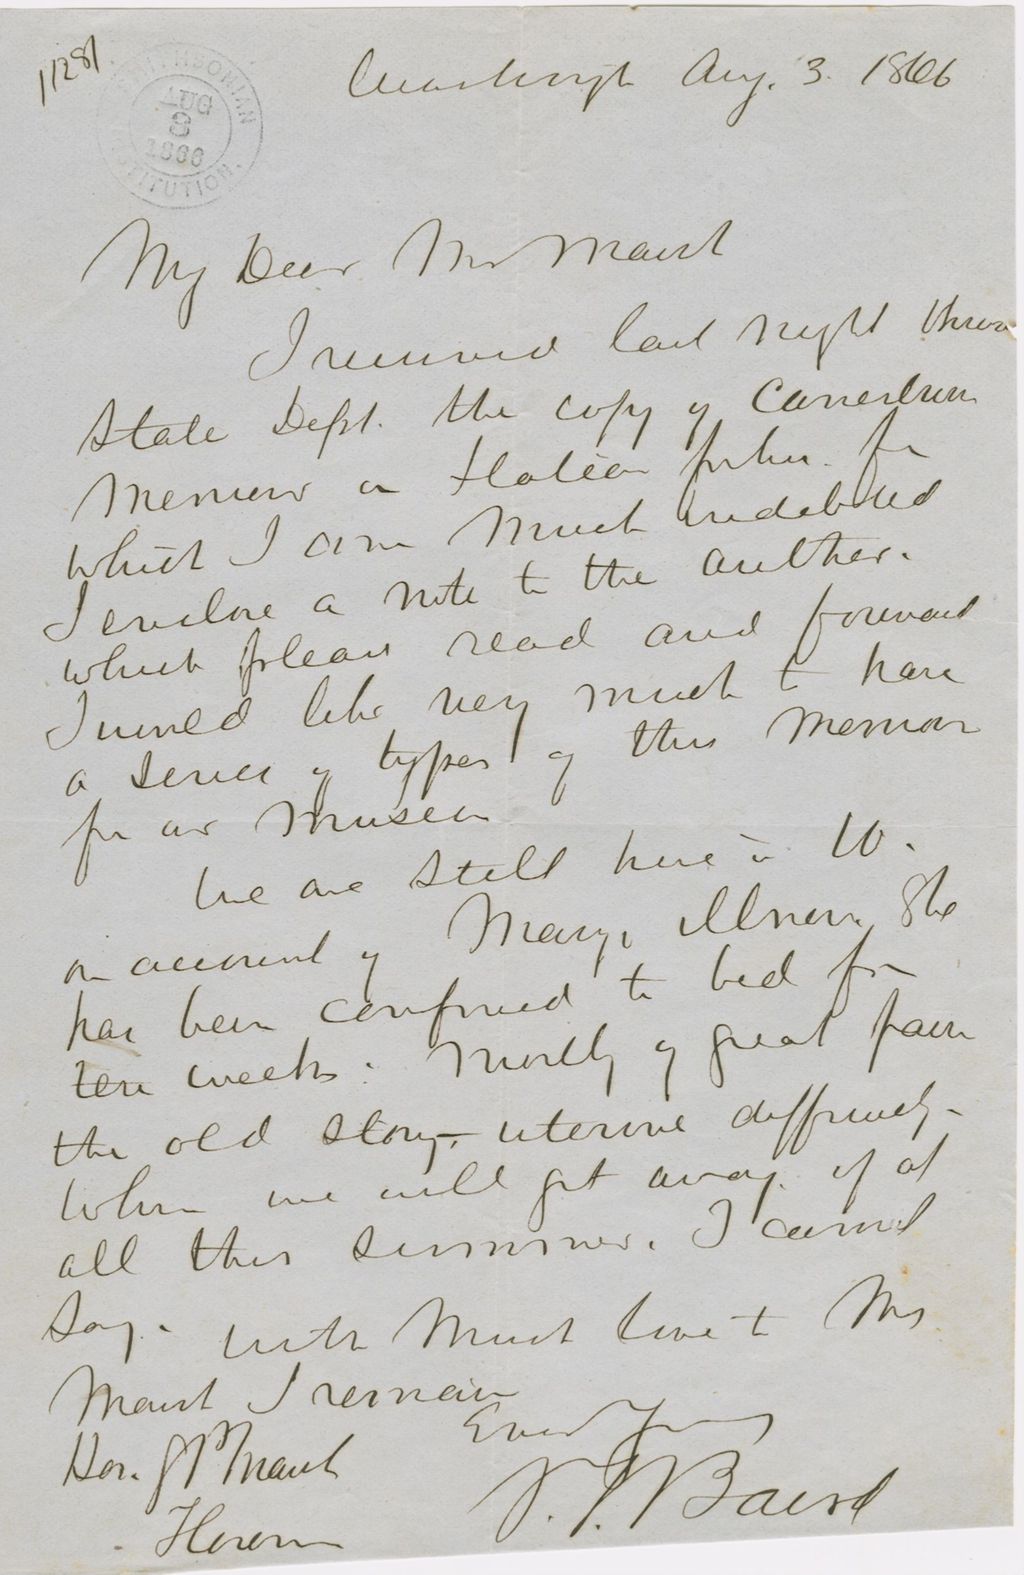 11281
SMITHSONIAN
INSTITUTION.
AUG
8
1866
Washingt Aug. 3. 1866
My Dear Mr Marsh
I received last night throu
State Dept. the copy of Canestrinis
Memoir on Italian fishes. for
which I am much indebted
I enclose a note to the author.
which please read and forward
I would like very much to have
a series of types of this Memoir
for our Museum
We are still here in W.
on account of Marys illness. She
has been confined to bed for
ten weeks. Mostly of great pain
the old story, uterine difficulty -
When we will get away. if at
all this summer. I cannot
say. With much love to Mrs
Marsh I remain
Ever Yours
Hon. G P Marsh
S. F. Baird
Florence